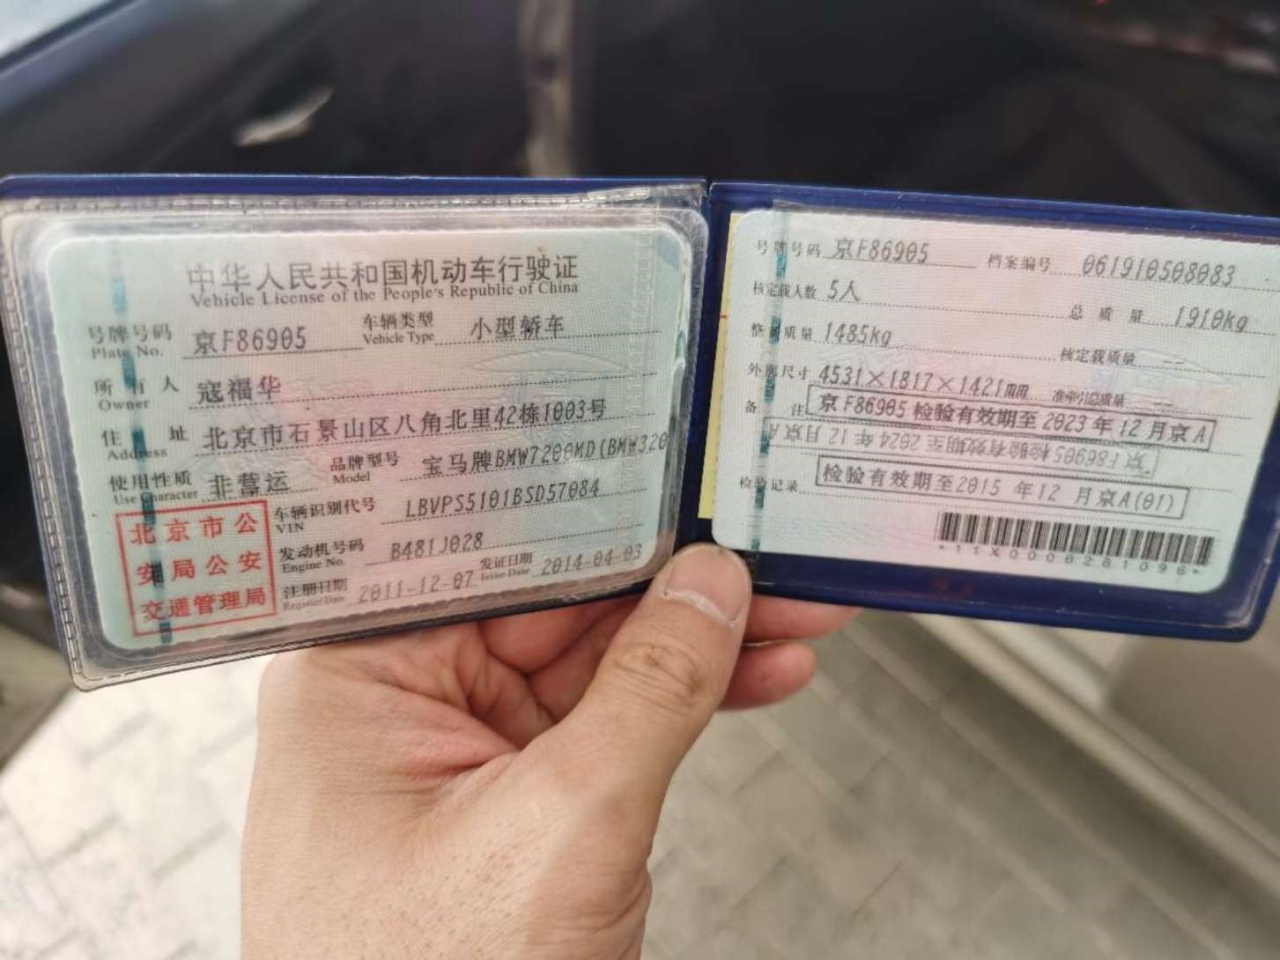 中华人民共和国机动车行驶证
Vehicle License of the People's Republic of China
号牌号码 京F86905 车辆类型 小型轿车
Plate No. Vehicle Type
所有人 寇福华
Owner
住址 北京市石景山区八角北里42栋1003号
Address
使用性质 非营运 品牌型号 宝马牌BMW7200MD(BMW320
Use Character Model
北京市公
安局公安
交通管理局
车辆识别代号 LBVPS5101BSD57084
VIN
发动机号码 B481J028
Engine No.
注册日期 2011-12-07 发证日期 2014-04-03
Register Date Issue Date
号牌号码 京F86905 档案编号 061910508083
核定载人数 5人 总质量 1910kg
整备质量 1485kg 核定载质量 --
外廓尺寸 4531×1817×1421mm 准牵引总质量 --
备注 京F86905 检验有效期至 2023 年 12 月京 A
京F86905 检验有效期至 2024 年 12 月京A
检验记录 检验有效期至2015 年12 月京A(01)
*11X0006281096*